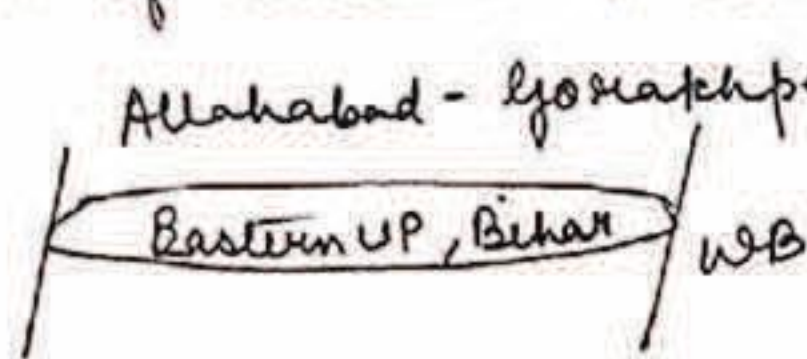 Allahabad - Gorakhp
Eastern UP, Bihar
WB